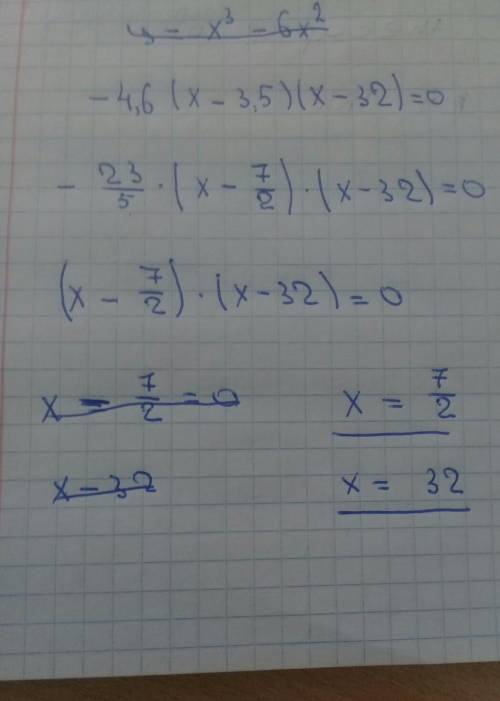 y - x³ - 6x²
-4,6 (x - 3,5)(x - 32) = 0
- 23/5 · (x - 7/2) · (x - 32) = 0
(x - 7/2) · (x - 32) = 0
x - 7/2 = 0 x = 7/2
x - 32 x = 32